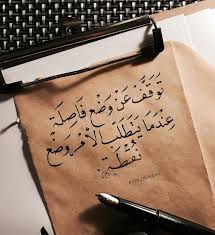 تَوَقَّفْ عَنْ وَضْعِ فَاصِلَةٍ
عِنْدَمَا يَتَطَلَّبُ الأَمْرُ وَضْعَ
نُقْطَةٍ